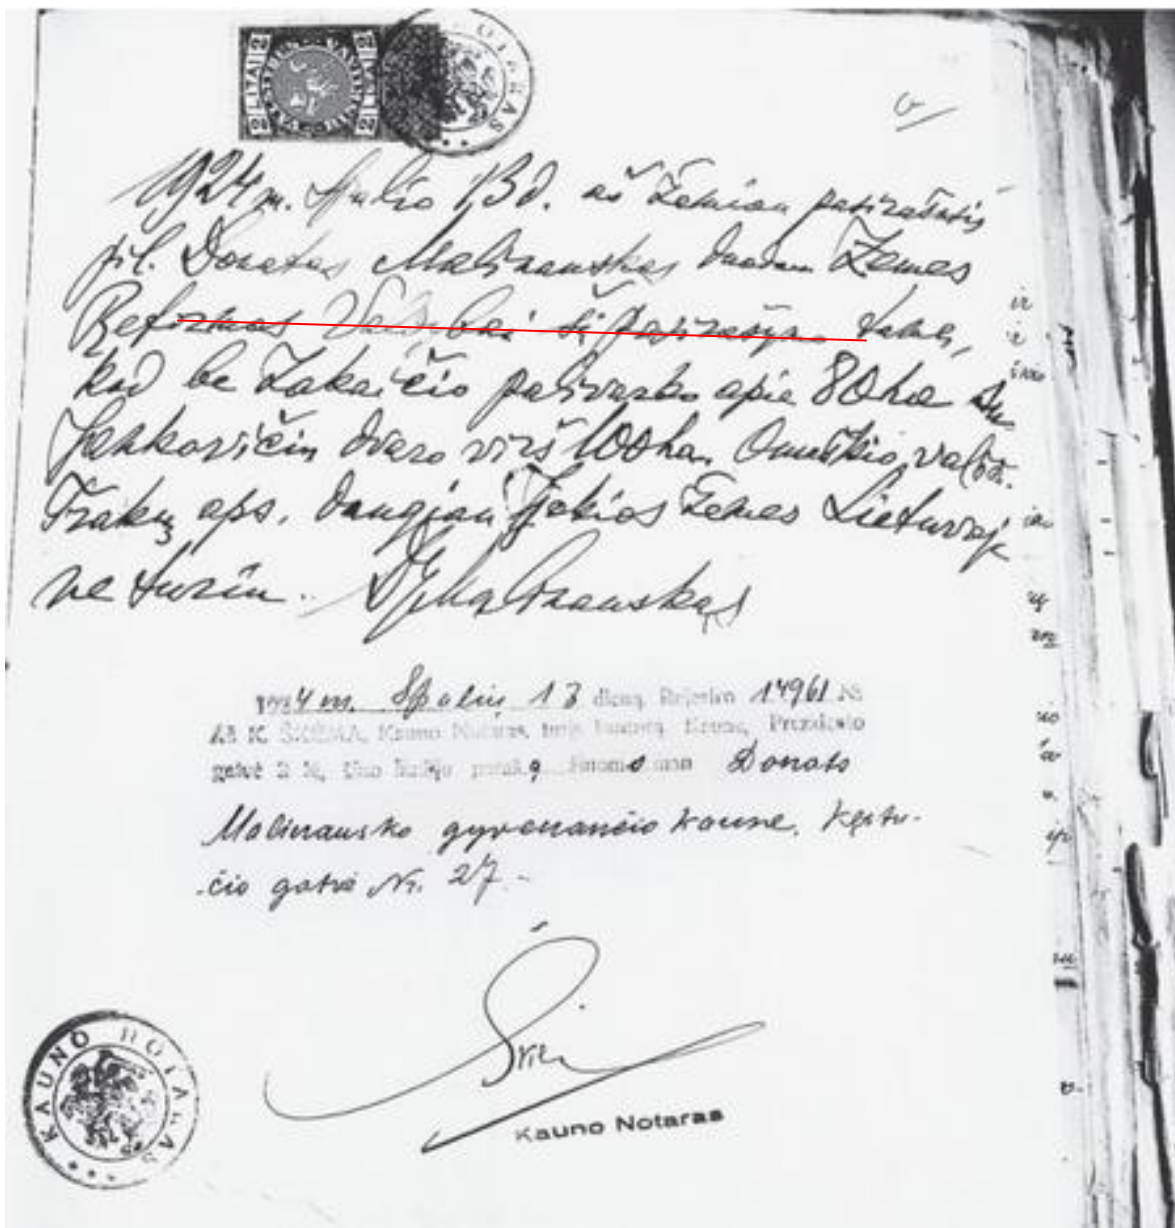 2 LITAI 2
NOTARAS
1924 m. Spalio 13 d. aš žemiau pasirašęsis
pil. Donatas Malinauskas duodu Žemes
Reformos Valdybai šį pasirašymą tame,
kad be Zakaičio palivarko apie 80 ha su
Jankovičių dvaro virš 100 ha. Onuškio valsč.
Trakų aps. daugiau jokios žemes Lietuvoje
ne turiu. DMalinauskas
1924 m. Spalių 13 dieną, 14961 №
Aš K. ŠKĖMA, Kauno Notaras, Kaune, Prezidento
gatvė 2 №, Donato
Malinausko gyvenančio Kaune. Kęstu-
čio gatvė Nr. 27.-
Kauno Notaras
KAUNO NOTARAS